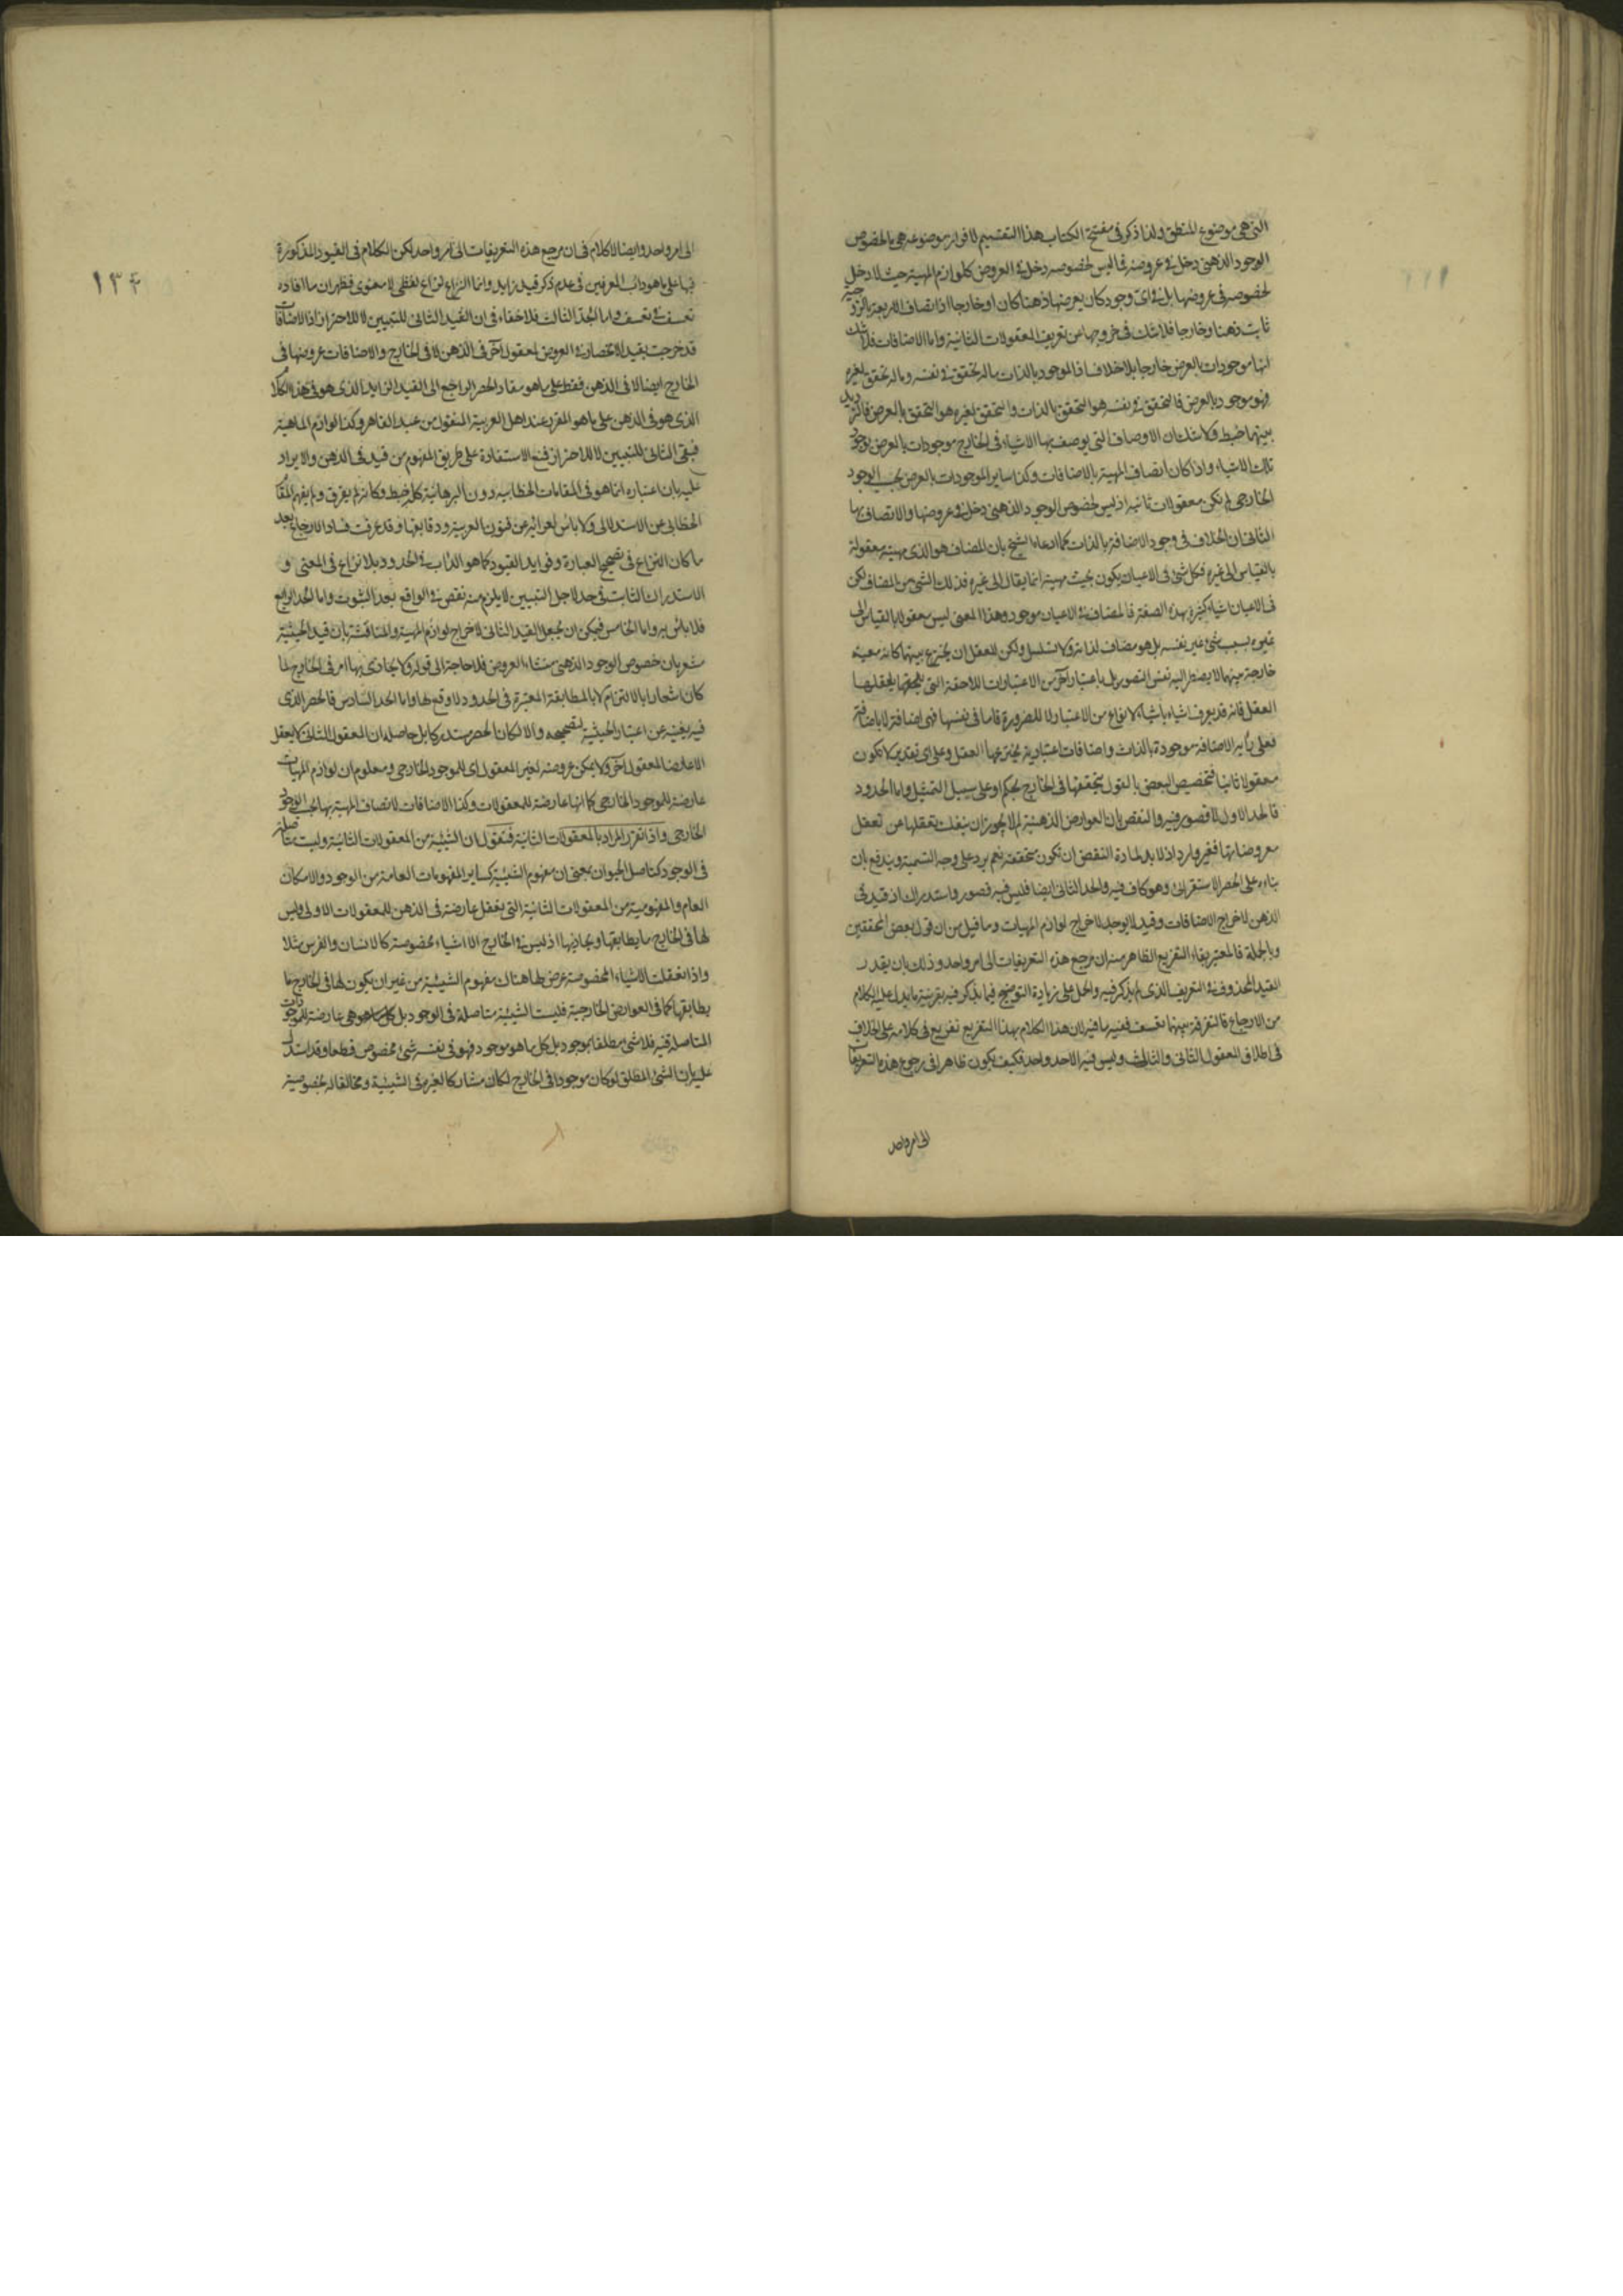 التي هي موضوع المنطق ولذا ذكر في مفتتح الكتاب هذا التقسيم لا فراز موضوعه هي ما لخصوص
الوجود الذهني دخل في عروضه فما ليس لخصوصه دخل في العروض كلوازم المهية حيث لا دخل
لخصوصه في عروضها بل في اي وجود كان يعرضها ذهنا كان او خارجا اذ اتصاف الاربعة بالزوجية
ثابت ذهنا وخارجا فلا شك في خروجها عن تعريف المعقولات الثانية واما الاضافات فلا شك
انها موجودات بالعرض خارجا بلا خلاف فالموجود بالذات ماله تحقق في نفسه وماله تحقق لغيره
فهو موجود بالعرض فالتحقق في نفسه هو التحقق بالذات والتحقق لغيره هو التحقق بالعرض فالترديد
بينهما خبط ولا شك ان الاوصاف التي يوصف بها الاشياء في الخارج موجودات بالعرض بوجود
تلك الاشياء واذا كان اتصاف المهية بالاضافات وكذا ساير الموجودات بالعرض بحسب الوجود
الخارجي لم يكن معقولات ثانية اذ ليس لخصوص الوجود الذهني دخل في عروضها والاتصاف بها
الثاني ان الخلاف في وجود الاضافة بالذات كما ادعاه الشيخ بان المضاف هو الذي مهيته معقولة
بالقياس الى غيره فكل شئ في الاعيان يكون بحيث مهيته انما يقال الى غيره فذلك الشئ من المضاف لكن
في الاعيان اشياء كثيرة بهذه الصفة فالمضاف في الاعيان موجود وهذا المعنى ليس معقولا بالقياس الى
غيره بسبب شئ غير نفسه بل هو مضاف لذاته ولا تسلسل ولكن للعقل ان يخترع بينهما كانه معية
خارجة منهما لا يضطر اليه نفس التصور بل باعتبار آخر من الاعتبارات اللاحقة التي يلحقها يعقلها
العقل فانه قد يعرف اشياء باشياء لانواع من الاعتبار لا للضرورة فاما في نفسها فهي اضافة لا باضافة
فعلى رأيه الاضافة موجودة بالذات واضافات اعتبارية يخترعها العقل وعلى اي تقدير لا تكون
معقولا ثانيا فتخصيص البعض بالقول بتحققها في الخارج تحكم او على سبيل التمثيل واما الحدود
فالحد الاول لا قصور فيه والنقض بان العوارض الذهنية لم لا يجوز ان ينفك تعقلها عن تعقل
معروضاتها فغير وارد اذ لا بد لمادة النقض ان تكون متحققة نعم يرد على وجه التسمية ويندفع بان
بناءه على الحصر الاستقرائي وهو كاف فيه والحد الثاني ايضا فليس فيه قصور واستدراك اذ قيد في
الذهن لاخراج الاضافات وقيد لا يوجد لاخراج لوازم المهيات وما قيل من ان قول بعض المحققين
وبالجملة فالمعتبر بقاء التفريع الظاهر منه ان مرجع هذه التعريفات الى امر واحد وذلك بان يقدر
القيد المحذوف في التعريف الذي لم يذكر فيه والحمل على زيادة التوضيح فيما يذكر فيه بقرينة ما يدل عليه الكلام
من الارجاع فالتفرقة بينهما تعسف ففيه ما فيه لان هذا الكلام بهذا التفريع تفريع في كلامه على الخلاف
في اطلاق المعقول الثاني والثالث وليس فيه الا حد واحد فكيف يكون ظاهرا في رجوع هذه التعريفات
الى امر واحد
١٣٤
الى امر واحد وايضا لا كلام في ان مرجع هذه التعريفات الى امر واحد لكن الكلام في القيود المذكورة
فيها على ما هو دأب المعرفين في عدم ذكر قيد زايد وانما النزاع نزاع لفظي لا معنوي فظهر ان ما افاده
تعسف في تعسف واما الحد الثالث فلا خفاء في ان القيد الثاني للتبيين لا للاحتراز اذ الاضافات
قد خرجت بقيد الانحصار في العروض لمعقول آخر في الذهن لا في الخارج والاضافات عروضها في
الخارج ايضا لا في الذهن فقط على ما هو مفاد الحصر الراجع الى القيد الزايد الذي هو في هذا الكلام
الذي هو في الذهن على ما هو المقرر عند اهل العربية المنقول من عبد القاهر وكذا لوازم الماهية
فبقى الثاني للتبيين لا للاحتراز فمنع الاستفادة على طريق المفهوم من قيد في الذهن والايراد
عليه بان اعتباره انما هو في المقامات الخطابية دون البرهانية كله خبط وكانه لم يفرق ولم يفهم المقام
الخطابي عن الاستدلالي ولا باس لعرائه عن فنون العربية ودقايقها وقد عرفت فساد الارجاع بعد
ما كان النزاع في تصحيح العبارة وفوايد القيود كما هو الدأب في الحدود بلا نزاع في المعنى و
الاستدراك الثابت في حد لاجل التبيين لا يلزم منه نقص في الواقع بعد الثبوت واما الحد الرابع
فلا باس به واما الخامس فيمكن ان يجعل القيد الثاني لاخراج لوازم المهية والمناقشة بان قيد الحيثية
مشعر بان خصوص الوجود الذهني منشاء العروض فلا حاجة الى قوله ولا يحاذي بها امر في الخارج لما
كان اشعارا بالالتزام لا بالمطابقة المعتبرة في الحدود لا وقع لها واما الحد السادس فالحصر الذي
فيه يغنيه عن اعتبار الحيثية لتصحيحه والا لكان الحصر مستدركا بل حاصله ان المعقول الثاني لا يعقل
الا عارضا لمعقول آخر ولا يمكن عروضه لغير المعقول اي للموجود الخارجي ومعلوم ان لوازم المهيات
عارضة للموجود الخارجي كما انها عارضة للمعقولات وكذا الاضافات لاتصاف المهية بها بحسب الوجود
الخارجي واذا تقرر المراد بالمعقولات الثانية فنقول ان الشيئية من المعقولات الثانية وليست متأصلة
في الوجود كتاصل الحيوان بمعنى ان مفهوم الشيئية كساير المفهومات العامة من الوجود والامكان
العام والمفهومية من المعقولات الثانية التي يعقل عارضة في الذهن للمعقولات الاولى وليس
لها في الخارج ما يطابقها ويحاذيها اذ ليس في الخارج الا اشياء مخصوصة كالانسان والفرس مثلا
واذا تعقلت الاشياء المخصوصة عرض لها هناك مفهوم الشيئية من غير ان يكون لها في الخارج ما
يطابقها كما في العوارض الخارجية فليست الشيئية متاصلة في الوجود بل كل ما هو هي عارضة للموجودات
المتاصلة فيه فلا شئ مطلقا بموجود بل كل ما هو موجود فهو في نفسه شئ مخصوص قطعا وقد استدل
عليه بان الشئ المطلق لو كان موجودا في الخارج لكان مشاركا لغيره في الشيئية ومخالفا له بخصوصية